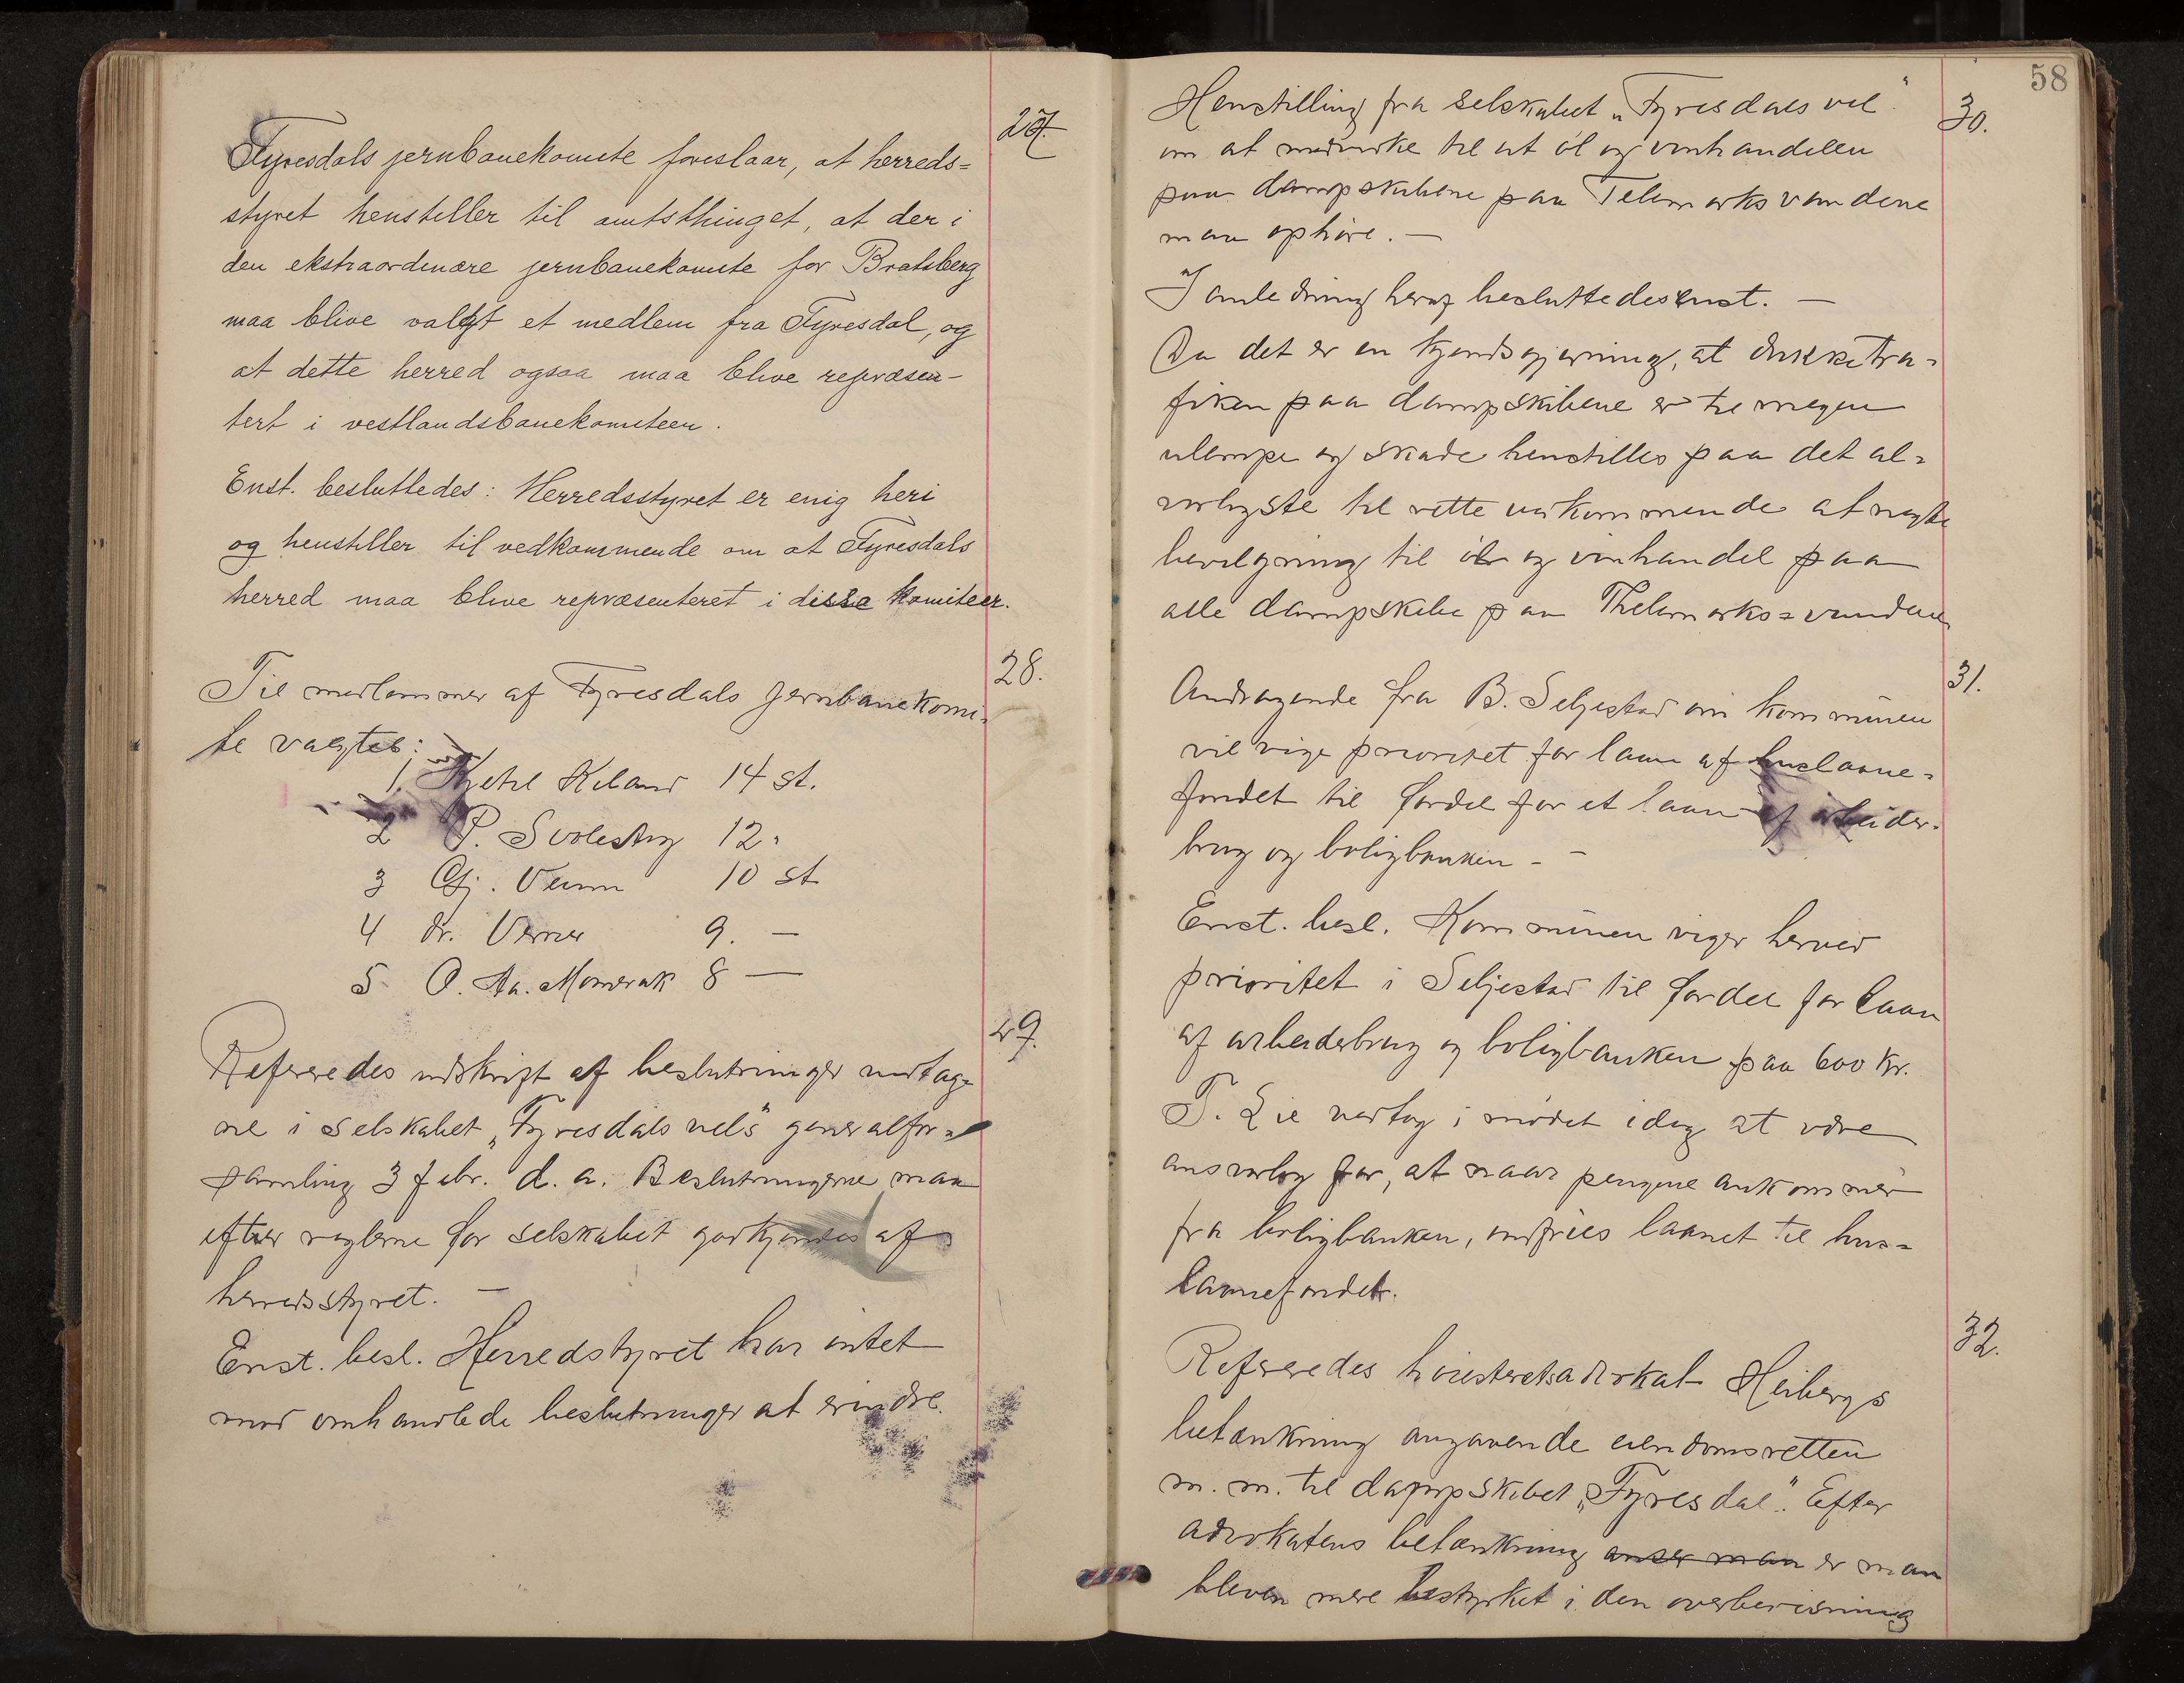 27.
Fyresdals jernbanekomite foreslaar, at herreds=
styret henstiller til amtsthinget, at der i
den ekstraordinære jernbanekomite for Bratsberg
maa blive valgt et medlem fra Fyresdal, og
at dette herred ogsaa maa blive repræsen-
tert i vestlandsbanekomiteen.
Enst. besluttedes: Herredsstyret er enig heri
og henstiller til vedkommende om at Fyresdals
herred maa blive repræsenteret i disse komiteer.
28.
Til medlemmer af Fyresdals Jernbanekomi=
te valgtes:
1. Kjetil Kiland 14 st.
2 P. Svolestog 12 "
3 Gj. Veum 10 st
4 dr. Verner 9. —
5. O. Aa. Momrak 8 —
29.
Refereredes udskrift af beslutninger vedtag=
ne i selskabet „Fyresdals vels" generalfor=
samling 3 febr. d. a. Beslutningerne maa
efter reglerne for selskabet godkjendes af
herredsstyret. —
Enst. besl. Herredstyret har intet
mod omhandlede beslutninger at erindre.
58
30.
Henstilling fra selskabet „Fyresdals vel"
om at medvirke til at øl og vinhandelen
paa dampskibene paa Telemarksvandene
maa ophøre. —
I anledning heraf besluttedes enst. —
Da det er en kjendsgjerning, at drikketra=
fiken paa dampskibene er til megen
ulempe og skade henstilles paa det al=
vorligste til rette vedkommende at nægte
bevilgning til øl og vinhandel paa
alle dampskibe paa Thelemarks=vandene
31.
Andragende fra B. Seljestad om kommunen
vil vige prioritet for laan af huslaane=
fondet til fordel for et laan af arbeider=
brug og boligbanken - -
Enst. besl. Kommunen viger herved
prioritet i Seljestad til fordel for laan
af arbeiderbrug og boligbanken paa 600 kr.
T. Lie vedtog i mødet idag at være
ansvarlig for, at naar pengene ankommer
fra boligbanken, indfries laanet til hus=
laanefondet.
32.
Refereredes høiesteretsadvokat Heibergs
betænkning angaaende eiendomsretten
m. m. til dampskibet „Fyresdal". Efter
advokatens betænkning anser man er man
bleven mere bestyrket i den overbevisning